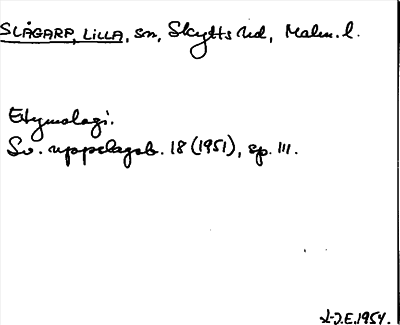 SLÅGARP, LILLA, sn, Skytts hd, Malm. l.
Etymologi.
Sv. uppslagsb. 18 (1951), sp. 111.
L-J.E. 1954.